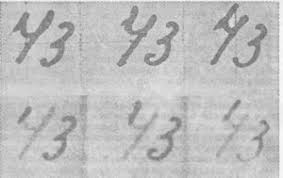 43 43 43
43 43 43